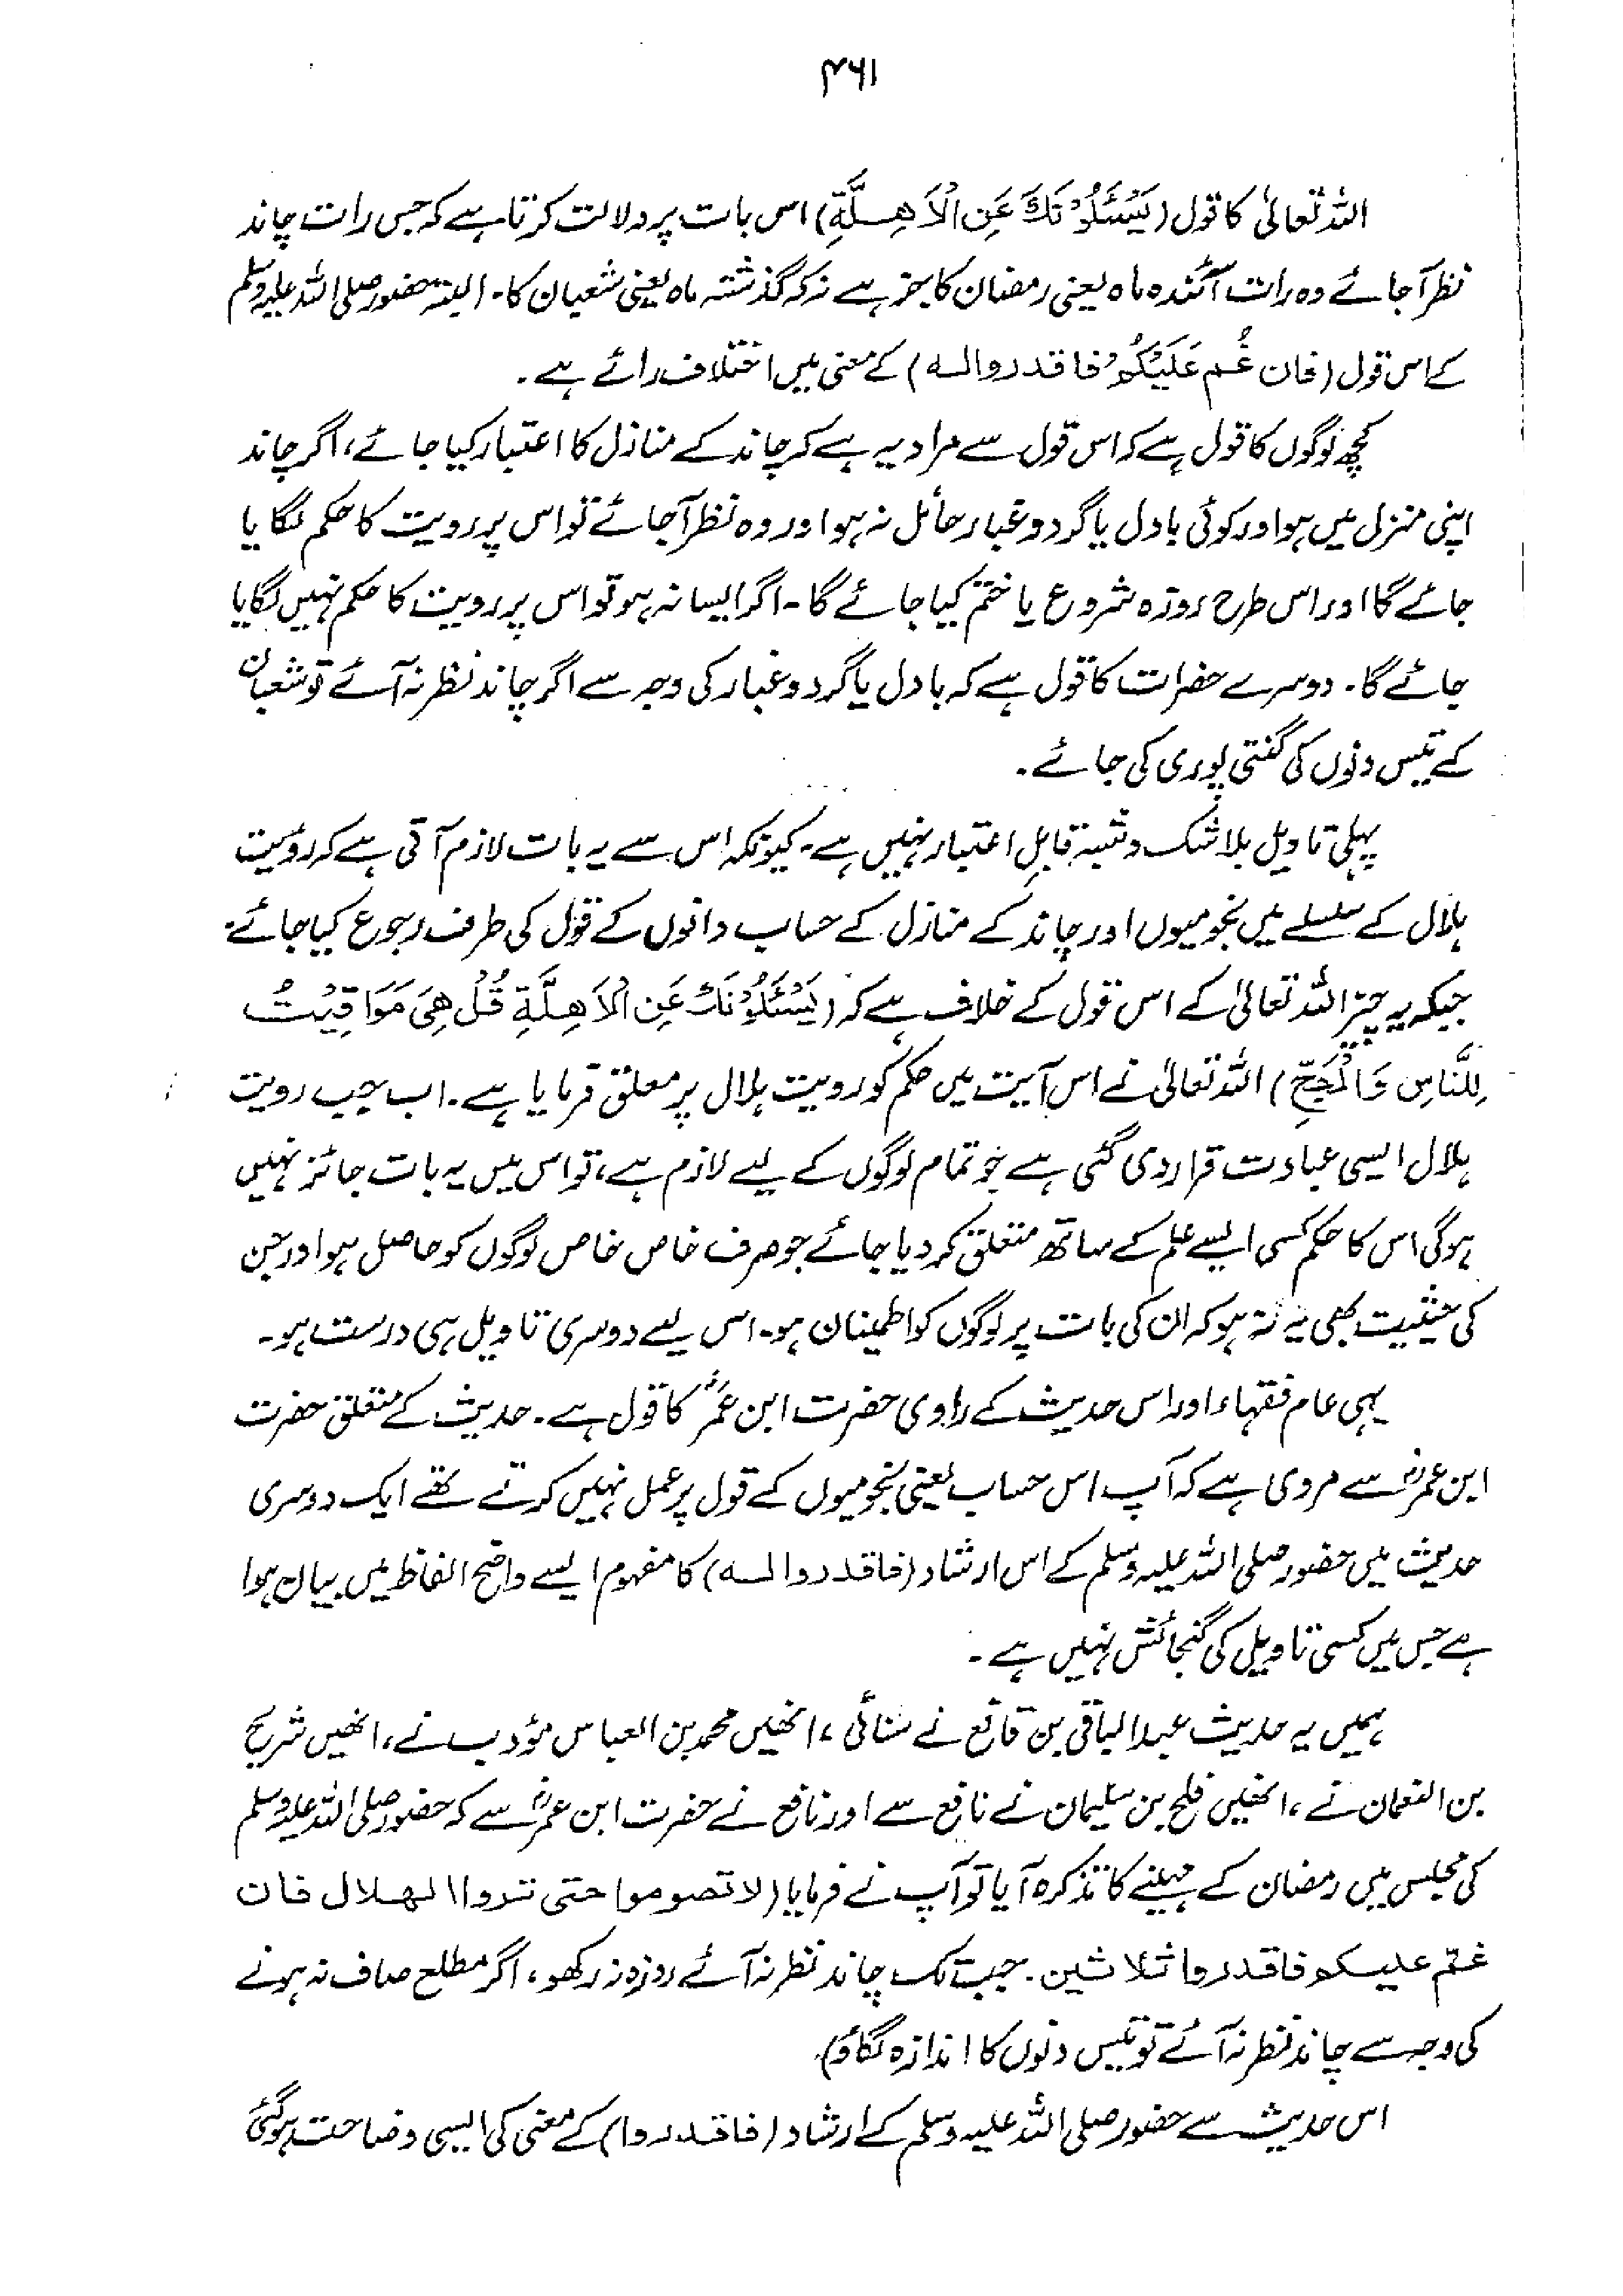 ۴۶۱
اللہ تعالیٰ کا قول (يَسْئَلُوْنَكَ عَنِ الْاَهِلَّةِ) اس بات پر دلالت کرتا ہے کہ جس رات چاند
نظر آجائے وہ رات آئندہ ماہ یعنی رمضان کا جز ہے نہ کہ گذشتہ ماہ یعنی شعبان کا۔ البتہ حضور صلی اللہ علیہ وسلم
کے اس قول (فان غُم عَلَيْكُمْ فاقدروا له) کے معنی میں اختلاف رائے ہے۔
کچھ لوگوں کا قول ہے کہ اس قول سے مراد یہ ہے کہ چاند کے منازل کا اعتبار کیا جائے، اگر چاند
اپنی منزل میں ہو اور کوئی بادل یا گرد و غبار حائل نہ ہو اور وہ نظر آجائے تو اس پر رویت کا حکم لگایا
جائے گا اور اس طرح روزہ شروع یا ختم کیا جائے گا۔ اگر ایسا نہ ہو تو اس پر رویت کا حکم نہیں لگایا
جائے گا۔ دوسرے حضرات کا قول ہے کہ بادل یا گرد و غبار کی وجہ سے اگر چاند نظر نہ آئے تو شعبان
کے تیس دنوں کی گنتی پوری کی جائے۔
پہلی تاویل بلاشک و شبہ قابلِ اعتبار نہیں ہے۔ کیونکہ اس سے یہ بات لازم آتی ہے کہ رؤیت
ہلال کے سلسلے میں نجومیوں اور چاند کے منازل کے حساب دانوں کے قول کی طرف رجوع کیا جائے۔
جبکہ یہ چیز اللہ تعالیٰ کے اس قول کے خلاف ہے کہ (يَسْئَلُوْنَكَ عَنِ الْاَهِلَّةِ قُلْ هِيَ مَوَاقِيْتُ
لِلنَّاسِ وَالْحَجِّ) اللہ تعالیٰ نے اس آیت میں حکم کو رویت ہلال پر معلق فرمایا ہے۔ اب جب رویت
ہلال ایسی عبادت قرار دی گئی ہے جو تمام لوگوں کے لیے لازم ہے، تو اس میں یہ بات جائز نہیں
ہوگی اس کا حکم کسی ایسے علم کے ساتھ متعلق کر دیا جائے جو صرف خاص خاص لوگوں کو حاصل ہو اور جن
کی حیثیت بھی یہ نہ ہو کہ ان کی بات پر لوگوں کو اطمینان ہو۔ اس لیے دوسری تاویل ہی درست ہو۔
یہی عام فقہاء اور اس حدیث کے راوی حضرت ابن عمرؓ کا قول ہے۔ حدیث کے متعلق حضرت
ابن عمرؓ سے مروی ہے کہ آپ اس حساب یعنی نجومیوں کے قول پر عمل نہیں کرتے تھے ایک دوسری
حدیث میں حضور صلی اللہ علیہ وسلم کے اس ارشاد (فاقدروا له) کا مفہوم ایسے واضح الفاظ میں بیان ہوا
ہے جس میں کسی تاویل کی گنجائش نہیں ہے۔
ہمیں یہ حدیث عبدالباقی بن قانع نے سنائی، انھیں محمد بن العباس مؤدب نے، انھیں شریح
بن النعمان نے، انھیں فلیح بن سلیمان نے نافع سے اور نافع نے حضرت ابن عمرؓ سے کہ حضور صلی اللہ علیہ وسلم
کی مجلس میں رمضان کے مہینے کا تذکرہ آیا تو آپ نے فرمایا (لا تصوموا حتى تروا الهلال فان
غمّ عليكم فاقدروا ثلاثين۔ جب تک چاند نظر نہ آئے روزہ نہ رکھو، اگر مطلع صاف نہ ہونے
کی وجہ سے چاند نظر نہ آئے تو تیس دنوں کا اندازہ لگاؤ)۔
اس حدیث سے حضور صلی اللہ علیہ وسلم کے ارشاد (فاقدروا) کے معنی کی ایسی وضاحت ہوگئی